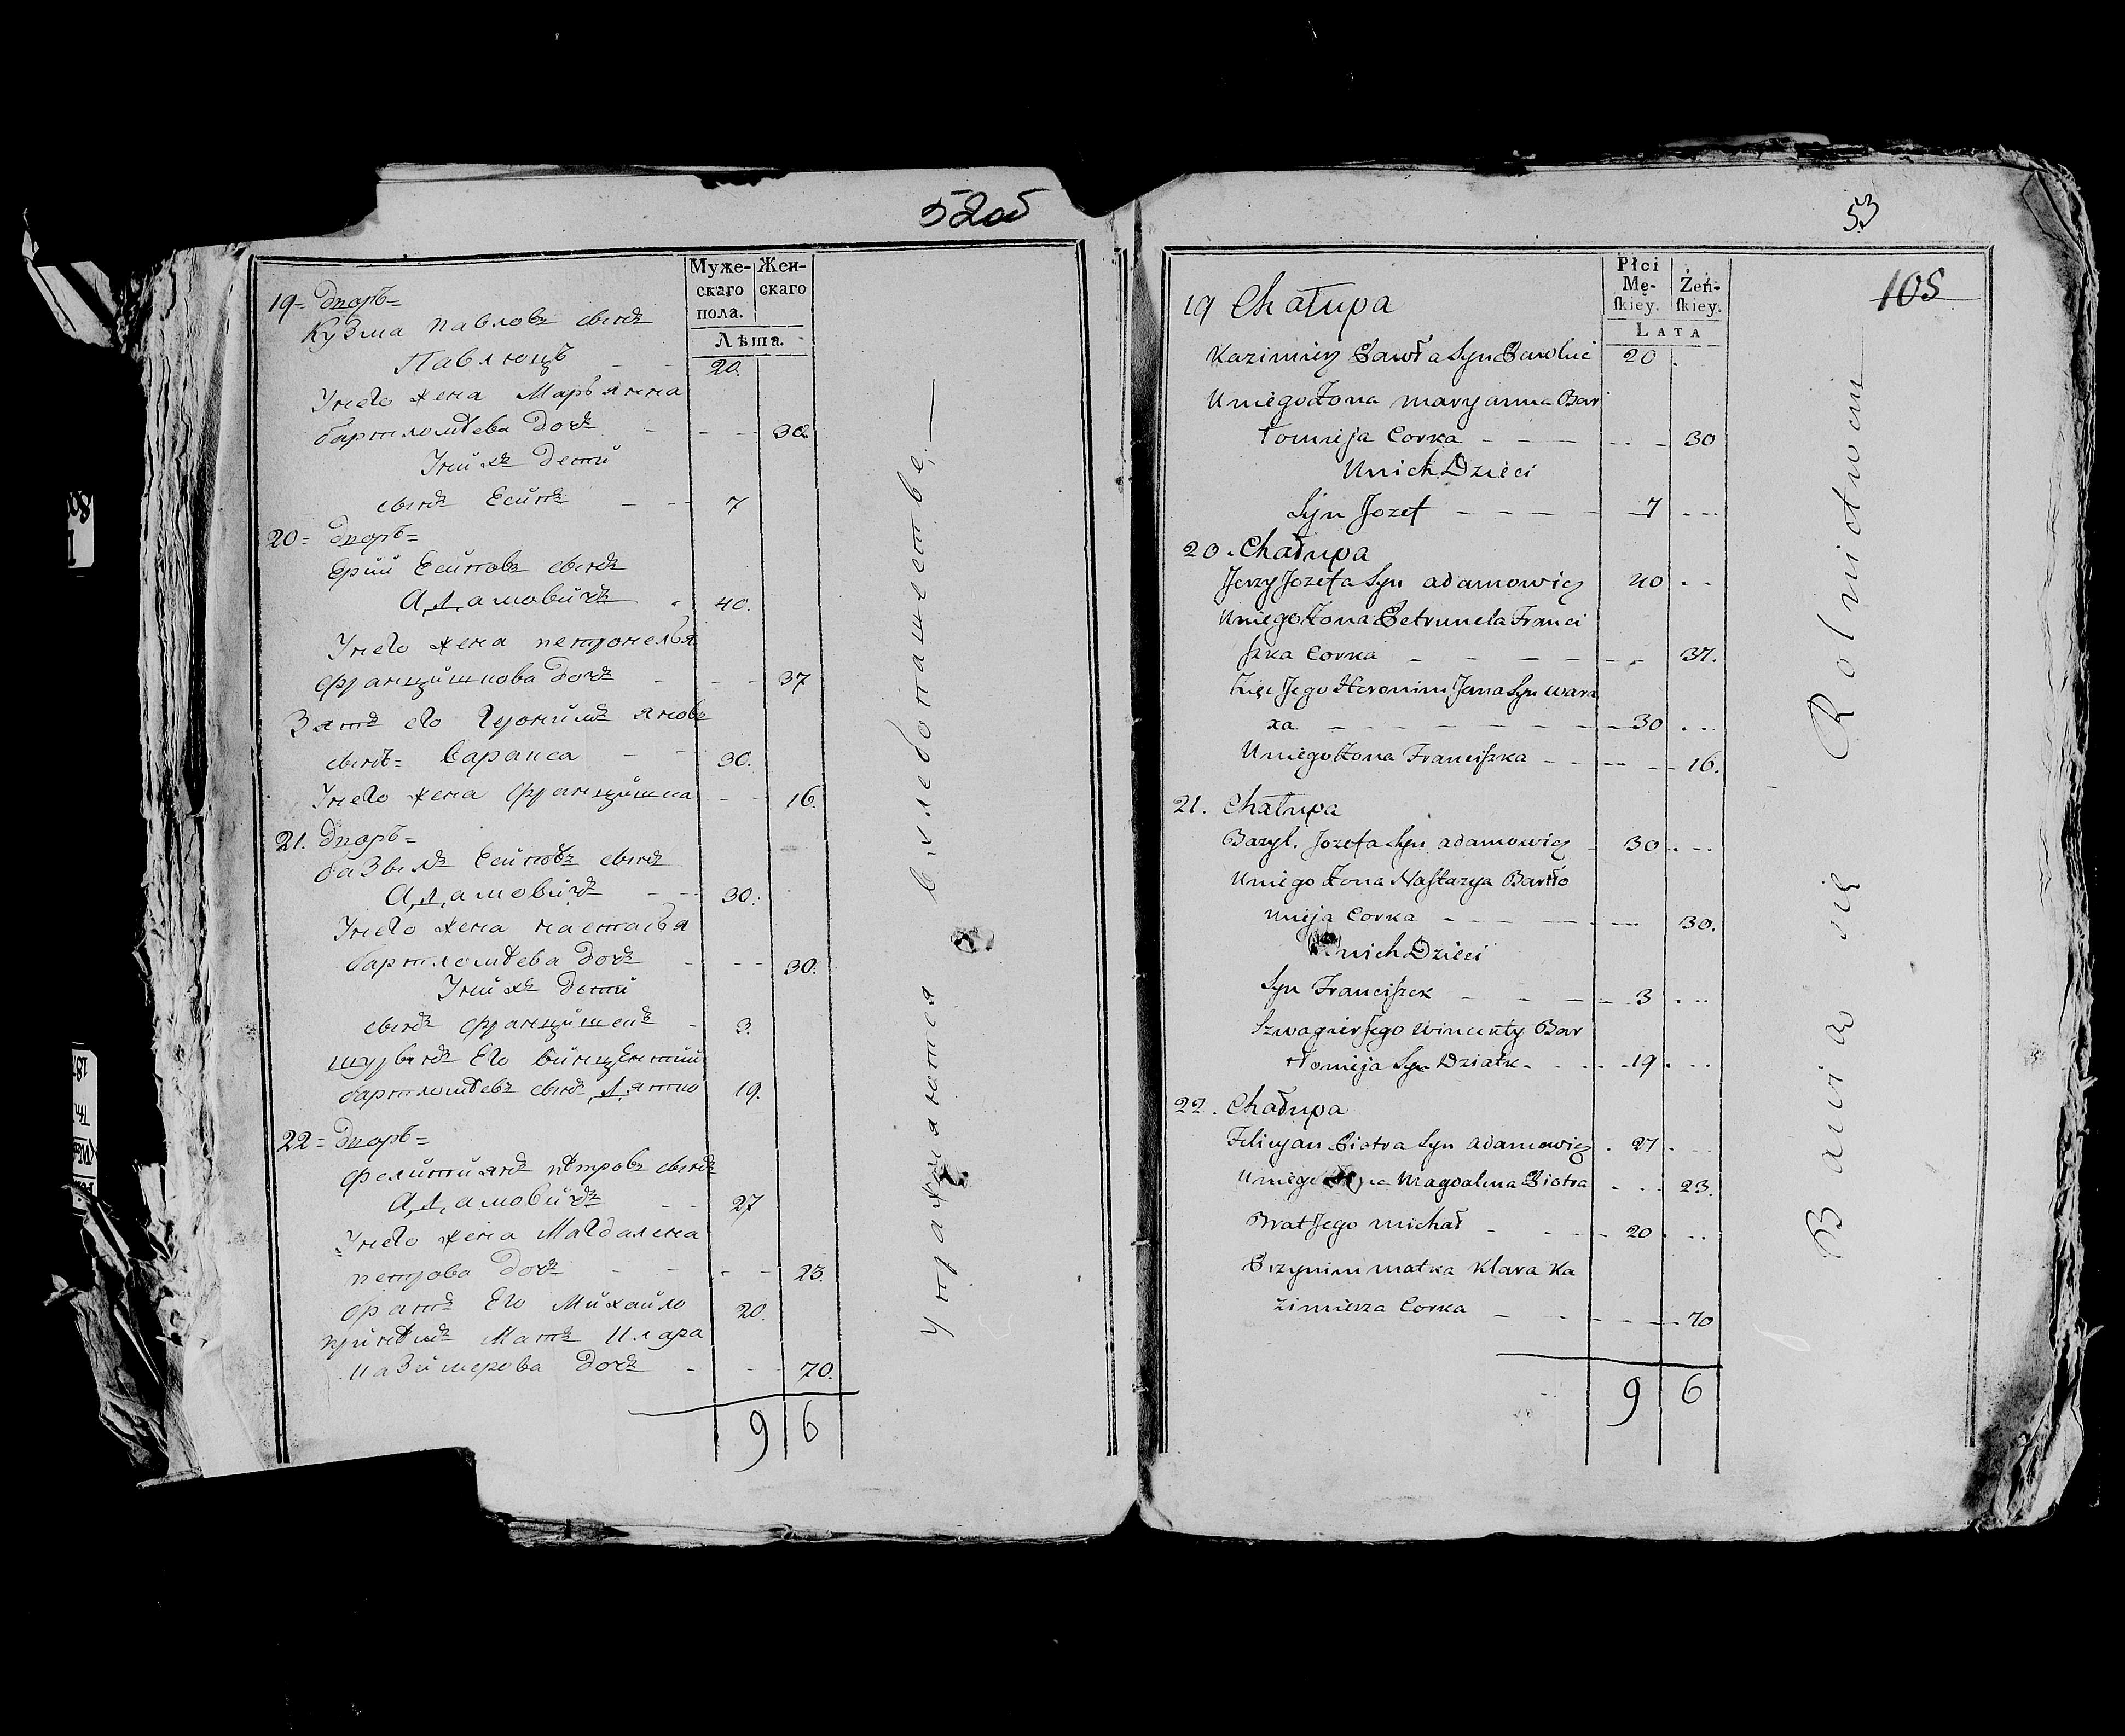 52об
Муже- Жен-
скаго скаго
пола.
Лѣта.
19= Дворъ=
Кузма Павловъ сынъ
Павлюцъ 20.
Унего жена Марьянна
бартломѣева дочь 30.
Унихъ дети
сынъ Есипъ 7
20= Дворъ=
Ерiй Есиповъ сынъ
Адамовичъ 40.
Унего жена петронелья
францишкова дочь 37
Зять его Геронимъ яновъ
сынъ= Варакса 30.
Унего жена францишка 16.
21. Дворъ=
базылъ Есиповъ сынъ
Адамовичъ 30.
Унего жена настасья
бартломѣева дочь 30.
Унихъ дети
сынъ францишекъ 3.
шурынъ Его винцентий
бартломѣевъ сынъ дятко 19.
22= Дворъ=
петровъ сынъ
Адамовичъ 27
Унего жена Магдалена
петрова дочь 23.
братъ Его Михайло 20.
принѣмъ Мать Клара
казимерова дочь 70.
9 6
упражняются в хлебопашестве.
53
105
Płci
Mę- Żeń-
ſkiey. ſkiey.
LATA
19 Chałupa
Kazimierz Pawła Syn Pawluć 20
Uniego Żona maryanna Bar
tomieja Corka 30
Unich Dzieci
Syn Jozef 7
20. Chałupa
Jerzy Jozefa Syn adamowicz 40
Uniego Żona Petrunela Franci
ſzka Corka 37.
Zięć Jego Heronim Jana Syn wara
xa 30
Uniego Żona Franciſzka 16.
21. Chałupa
Bazyl. Jozefa Syn adamowicz 30
Uniego Żona Naſtazya Bartło
mieja Corka 30.
Unich Dzieci
Syn Franciſzek 3
Szwagier Jego Wincenty Bar
tłomieja Syn Dziatk 19
22. Chałupa
Felicyan Piotra Syn adamowicz 27
Uniego Żona Magdalena Piotra 23.
Brat Jego michał 20
Przynim matka Klara Ka
zimierza Corka 70
9 6
Bawią się Rolnictwem